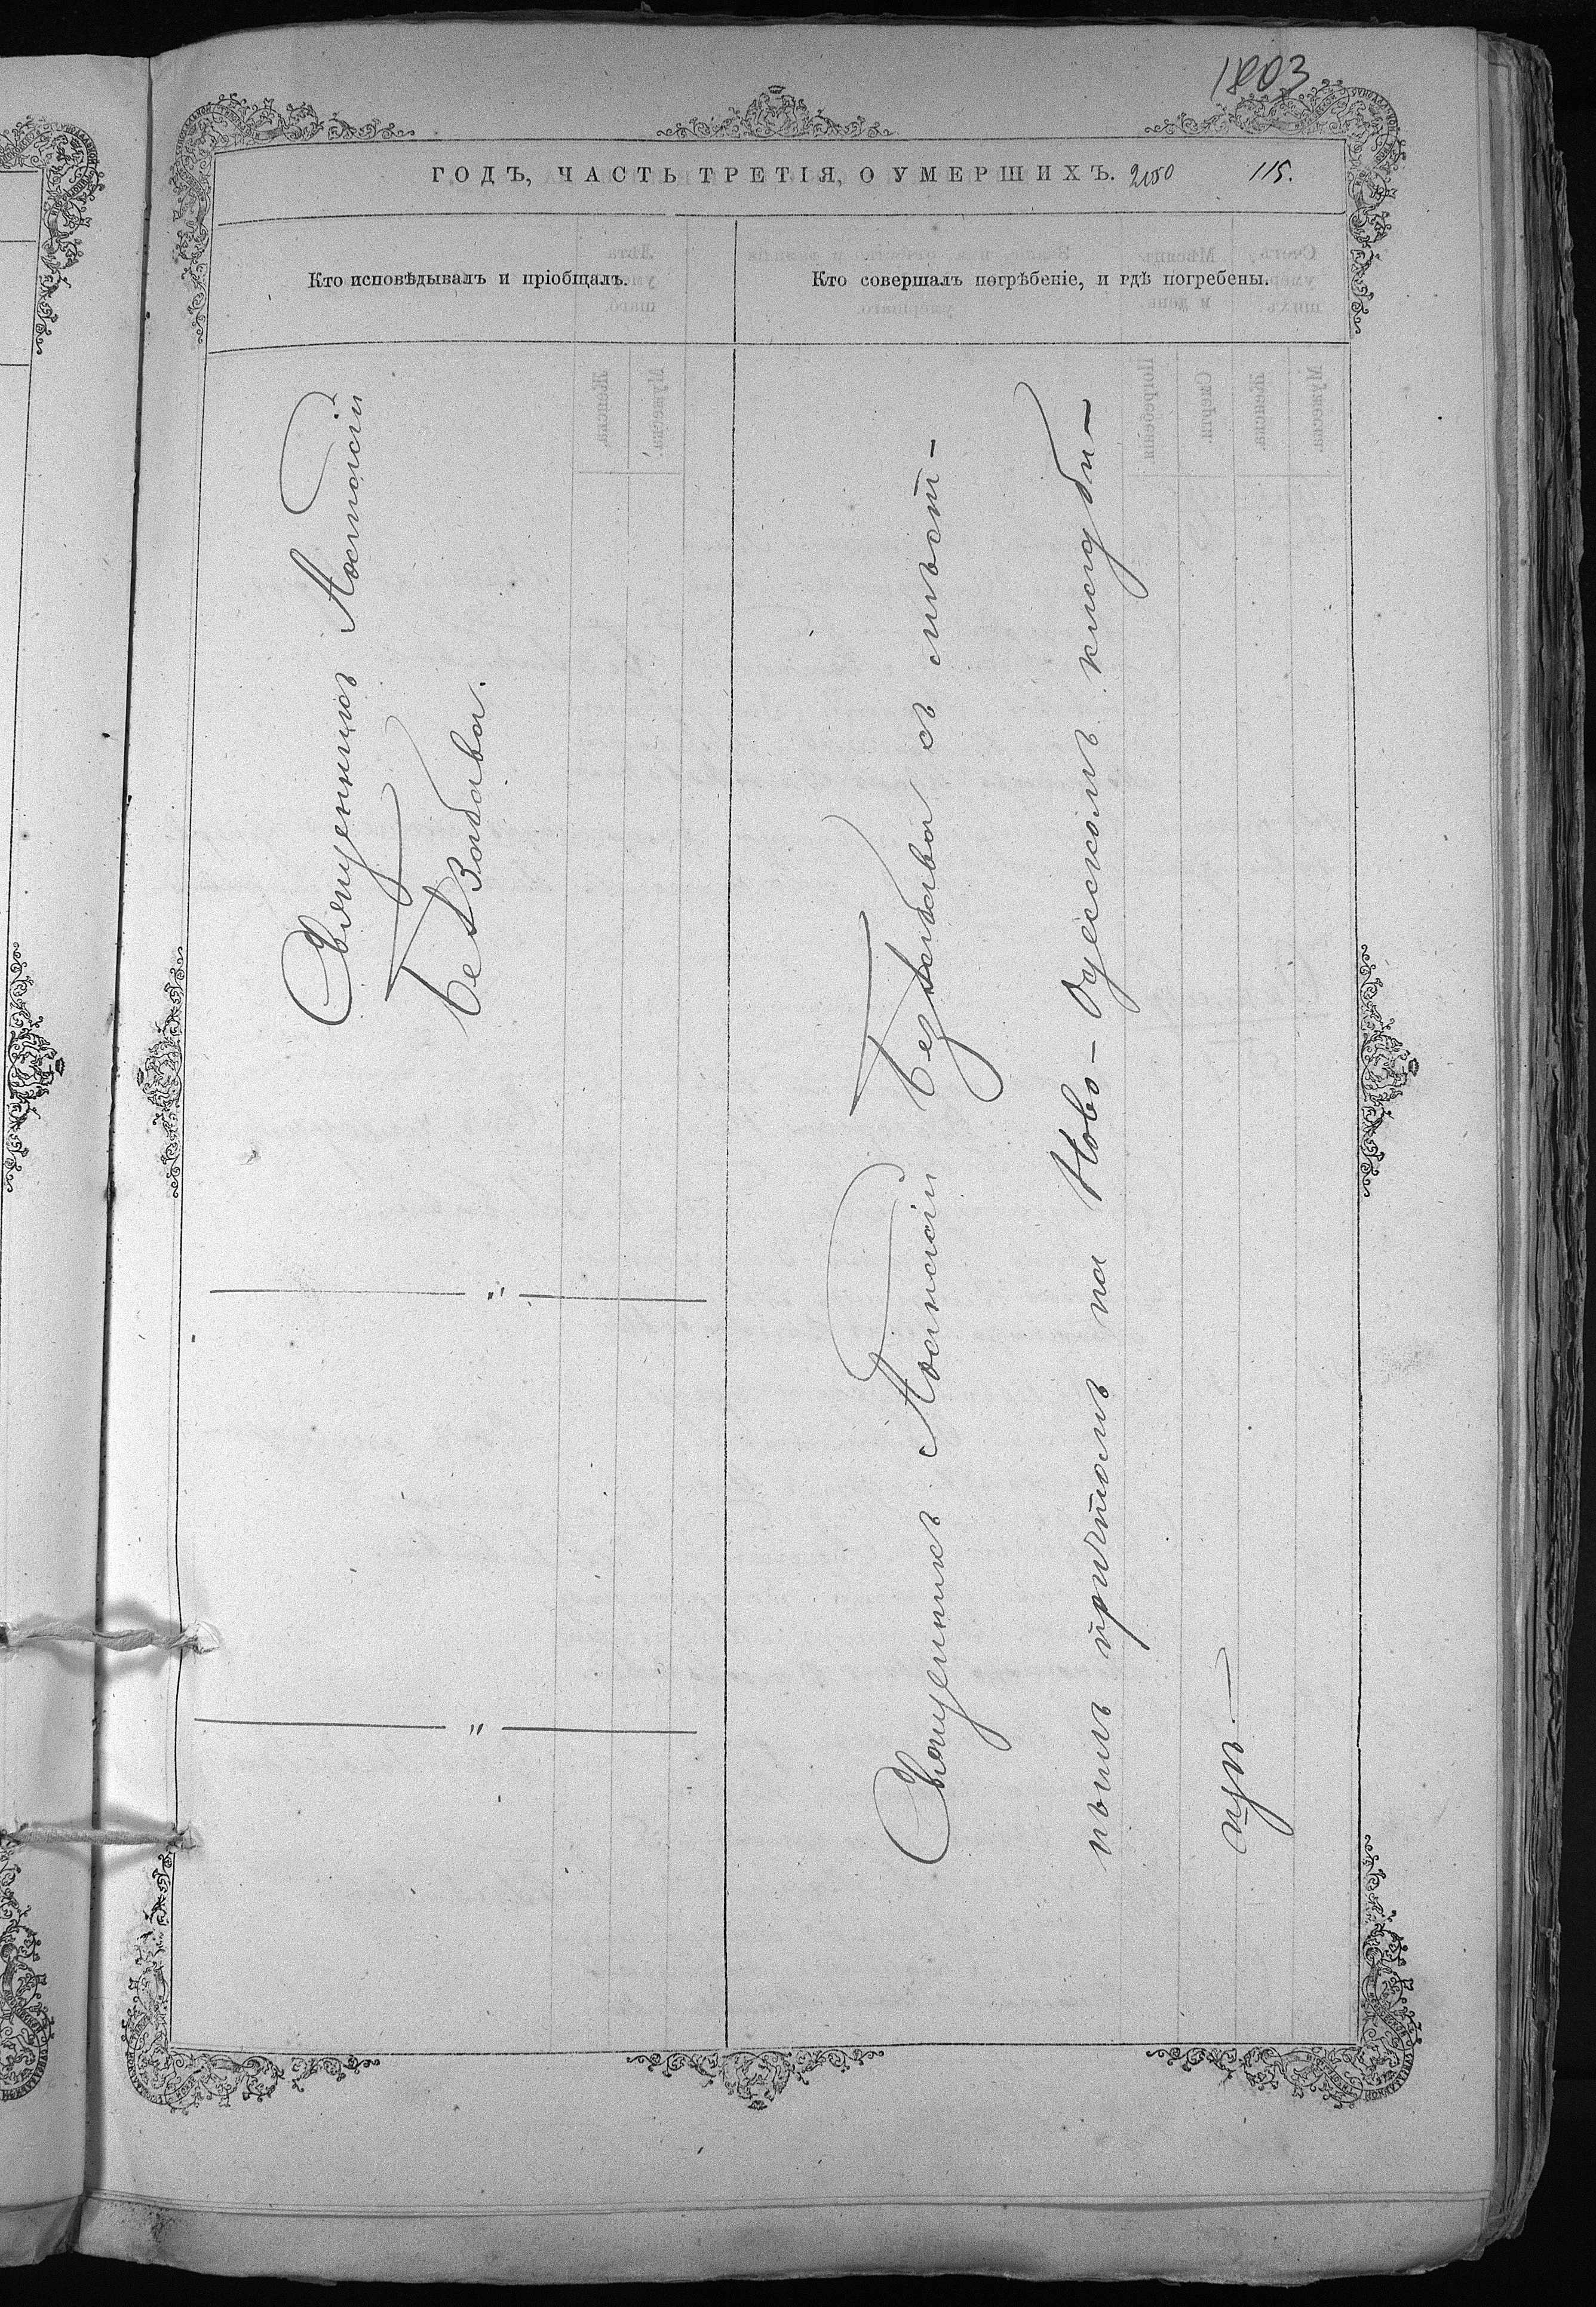 1803
ГОДЪ, ЧАСТЬ ТРЕТІЯ, О УМЕРШИХЪ. 2150 115.
Кто исповѣдывалъ и пріобщалъ.
Кто совершалъ погрѣбеніе, и гдѣ погребены.
Священникъ Афанасій
Беззабава.
"
"
Священникъ Афанасій Беззабава съ мѣст-
нымъ причтомъ на Ново-Одесскомъ кладби-
щѣ.—